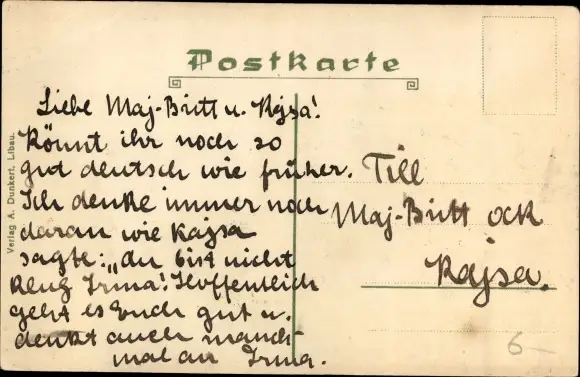 Postkarte
Liebe Maj-Britt u. Kajsa!
Könnt ihr noch so
gut deutsch wie früher.
Ich denke immer noch
daran wie Kajsa
sagte: „du bist nicht
klug Irma! Hoffentlich
geht es Euch gut u.
denkt auch manch-
mal an Irma.
Till
Maj-Britt ock
Kajsa.
Verlag A. Dunkert, Libau.
6-